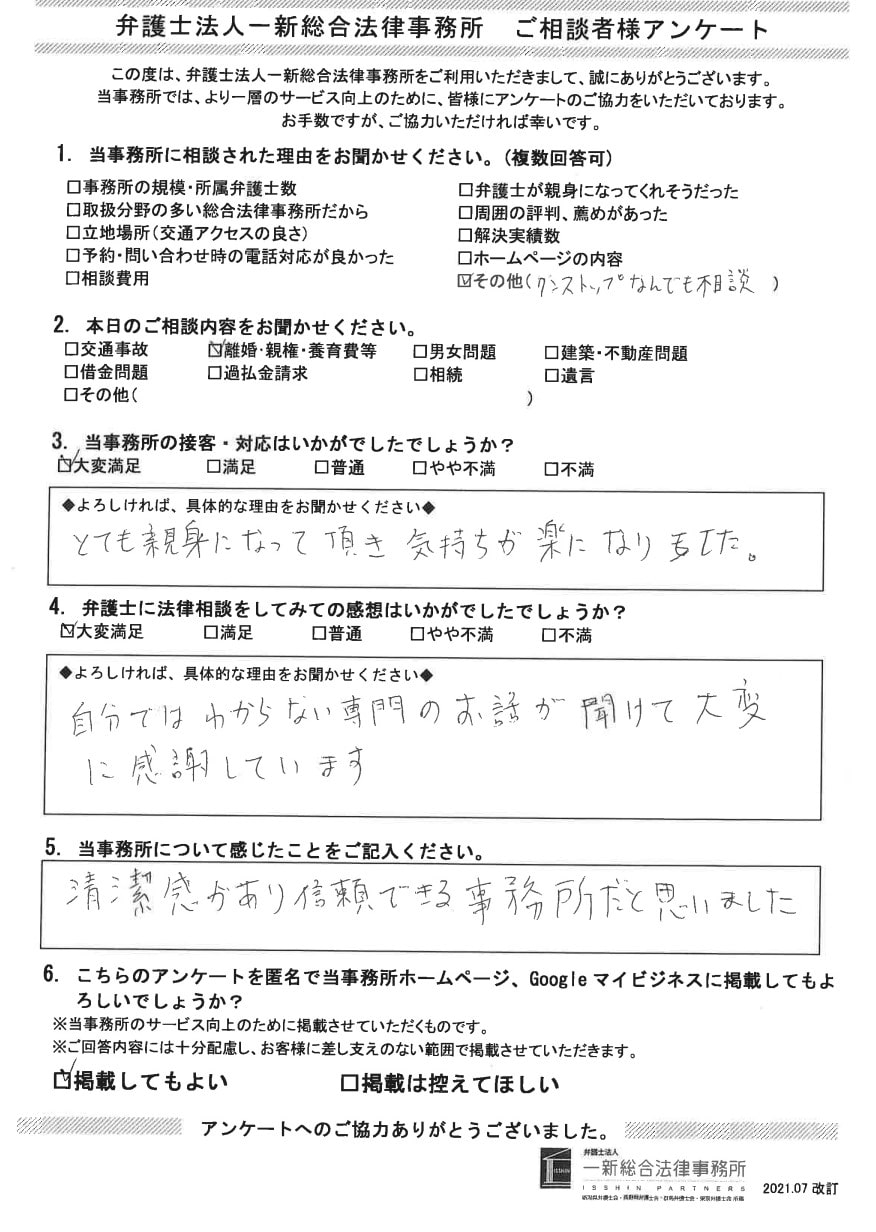 弁護士法人一新総合法律事務所　ご相談者様アンケート
この度は、弁護士法人一新総合法律事務所をご利用いただきまして、誠にありがとうございます。
当事務所では、より一層のサービス向上のために、皆様にアンケートのご協力をいただいております。
お手数ですが、ご協力いただければ幸いです。
1. 当事務所に相談された理由をお聞かせください。（複数回答可）
□事務所の規模・所属弁護士数　□弁護士が親身になってくれそうだった
□取扱分野の多い総合法律事務所だから　□周囲の評判、薦めがあった
□立地場所（交通アクセスの良さ）　□解決実績数
□予約・問い合わせ時の電話対応が良かった　□ホームページの内容
□相談費用　☑その他（ワンストップなんでも相談）
2. 本日のご相談内容をお聞かせください。
□交通事故　☑離婚・親権・養育費等　□男女問題　□建築・不動産問題
□借金問題　□過払金請求　□相続　□遺言
□その他（　）
3. 当事務所の接客・対応はいかがでしたでしょうか？
☑大変満足　□満足　□普通　□やや不満　□不満
◆よろしければ、具体的な理由をお聞かせください◆
とても親身になって頂き 気持ちが楽になりました。
4. 弁護士に法律相談をしてみての感想はいかがでしたでしょうか？
☑大変満足　□満足　□普通　□やや不満　□不満
◆よろしければ、具体的な理由をお聞かせください◆
自分ではわからない専門のお話が聞けて大変
に感謝しています
5. 当事務所について感じたことをご記入ください。
清潔感があり信頼できる事務所だと思いました
6. こちらのアンケートを匿名で当事務所ホームページ、Google マイビジネスに掲載してもよ
ろしいでしょうか？
※当事務所のサービス向上のために掲載させていただくものです。
※ご回答内容には十分配慮し、お客様に差し支えのない範囲で掲載させていただきます。
☑掲載してもよい　□掲載は控えてほしい
アンケートへのご協力ありがとうございました。
弁護士法人
ISSHIN 一新総合法律事務所
ISSHIN PARTNERS
新潟県弁護士会・長野県弁護士会・群馬弁護士会・東京弁護士会 所属
2021.07 改訂